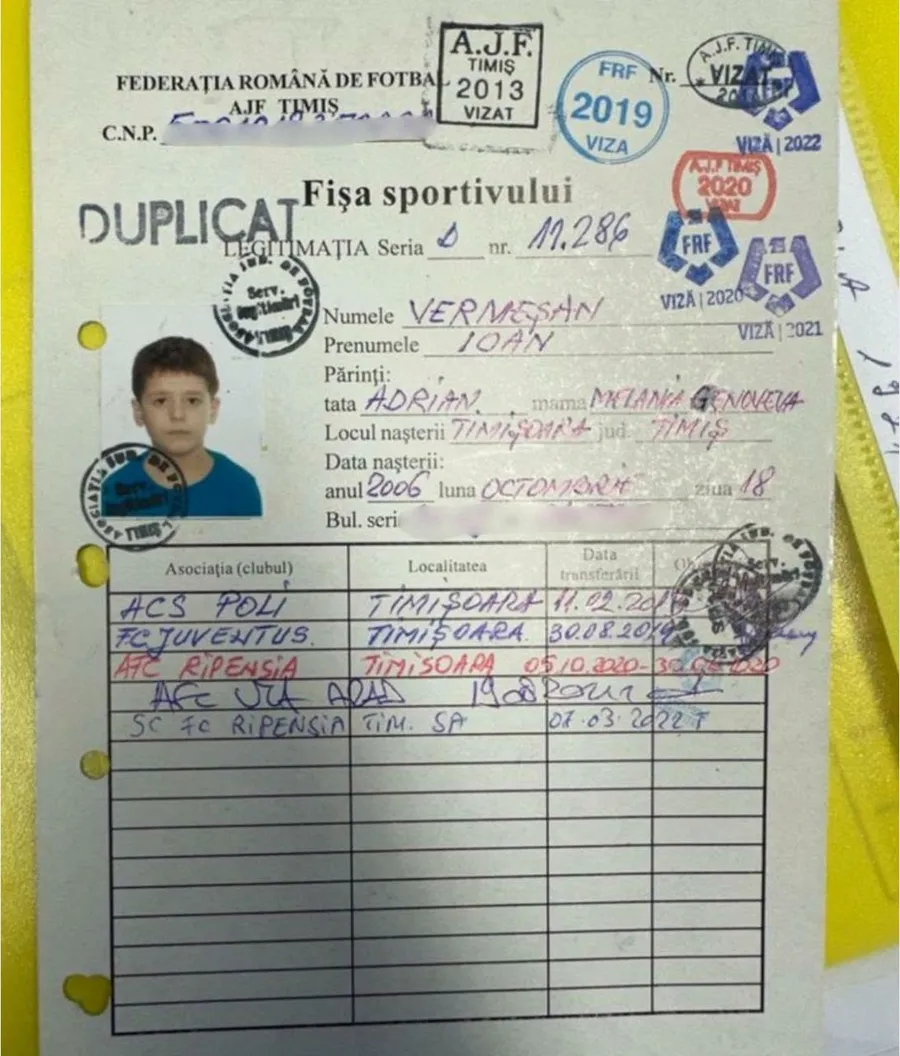 FEDERAȚIA ROMÂNĂ DE FOTBAL
AJF TIMIȘ
C.N.P.
A.J.F.
TIMIȘ
2013
VIZAT
FRF
2019
VIZA
Nr.
A.J.F. TIMIȘ
VIZAT
VIZĂ | 2022
A.J.F TIMIȘ
2020
VIZAT
DUPLICAT
Fișa sportivului
LEGITIMAȚIA Seria D nr. 11.286
FRF
VIZĂ | 2020
FRF
VIZĂ | 2021
Serv.
Numele VERMEȘAN
Prenumele IOAN
Părinți:
tata ADRIAN mama MELANIA GENOVEVA
Locul nașterii TIMIȘOARA jud. TIMIȘ
Data nașterii:
anul 2006 luna OCTOMBRIE ziua 18
Bul. seri
Asociația (clubul) Localitatea Data transferării
ACS POLI TIMIȘOARA 11.02.201
FC JUVENTUS. TIMIȘOARA. 30.08.2019
AFC RIPENSIA TIMISOARA 05.10.2020-30.06.2020
AFC UTA ARAD
SC FC RIPENSIA TIM. SA 07.03.2022 T